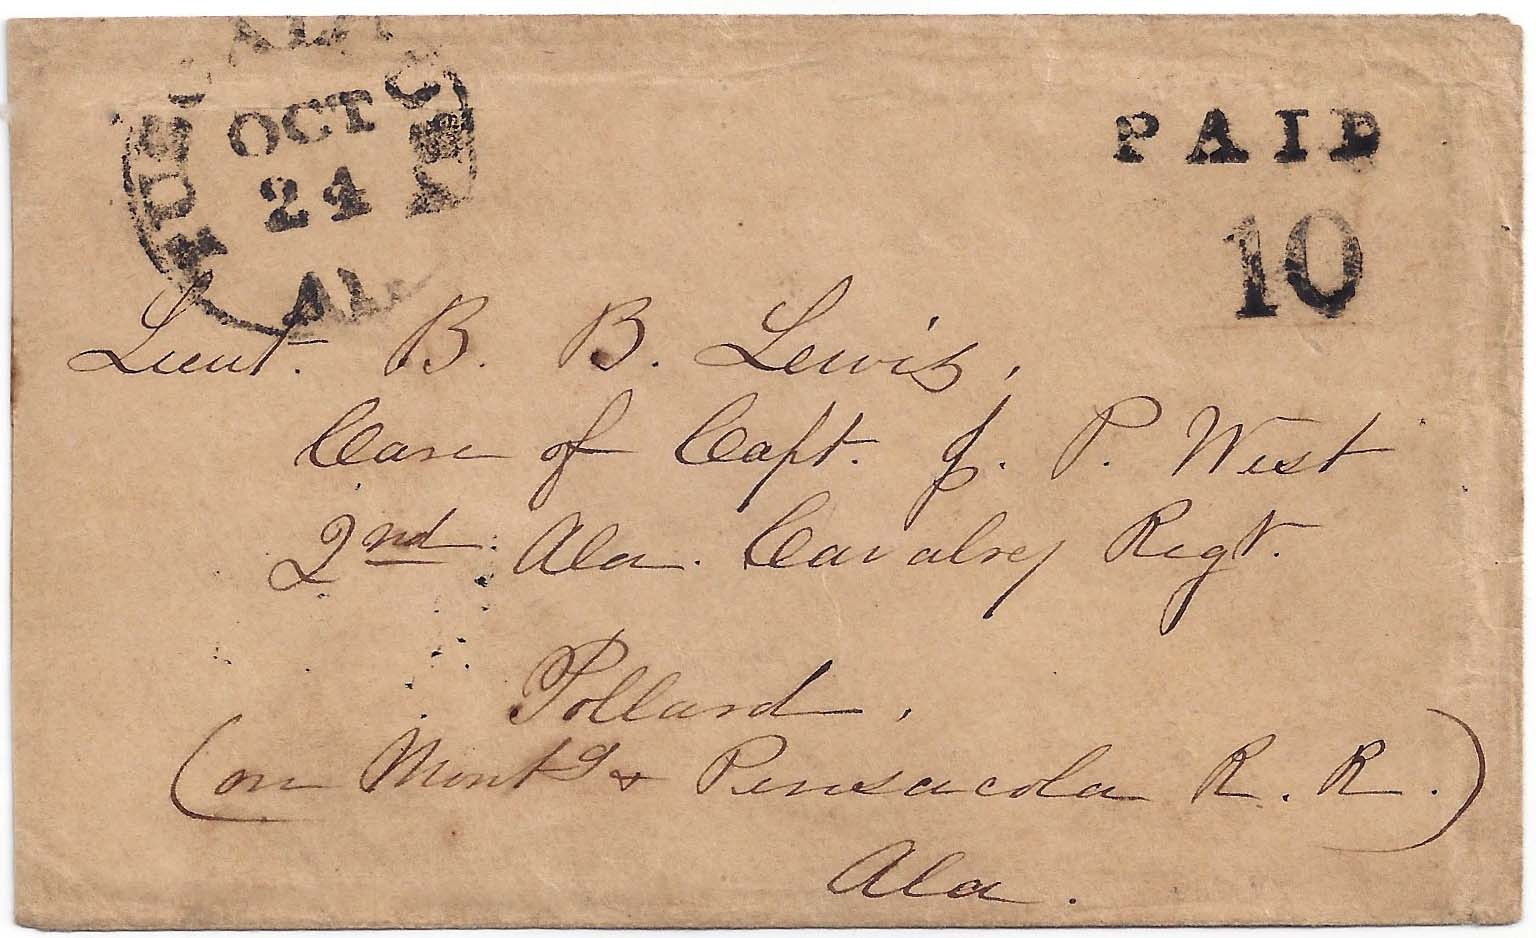 TUSCALOOSA
OCT
24
Ala.
PAID
10
Lieut. B. B. Lewis,
Care of Capt. J. P. West
2nd Ala. Cavalrey Regt.
Pollard,
(on Montg & Pensacola R. R.)
Ala.